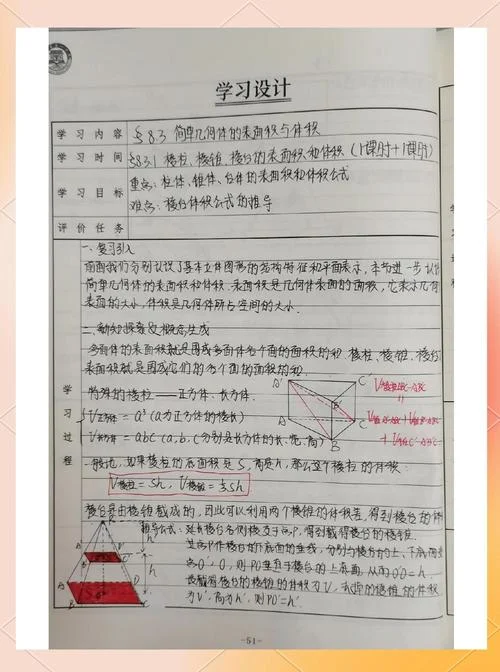 学习设计
学习内容 §8.3 简单几何体的表面积与体积
学习时间 §8.3.1 棱柱、棱锥、棱台的表面积和体积 (1课时+1课时)
学习目标 重点: 柱体、锥体、台体的表面积和体积公式
难点: 棱台体积公式的推导
评价任务
一、复习引入
前面我们分别认识了基本立体图形的结构特征和平面表示, 本节进一步认识
简单几何体的表面积和体积. 表面积是几何体表面的面积, 它表示几何体
表面的大小, 体积是几何体所占空间的大小.
二、新知探索及概念生成
多面体的表面积就是围成多面体各个面的面积的和. 棱柱、棱锥、棱台
表面积就是围成它们的各个面的面积的和.
学习过程
特殊的棱柱——正方体、长方体.
V正方体 = a³ (a为正方体的棱长)
V长方体 = abc (a、b、c分别是长方体的长、宽、高)
A' C' B' A C B
一般地, 如果棱柱的底面积是S, 高是h, 那么这个棱柱的体积:
V棱柱 = Sh, V棱锥 = ⅓Sh
棱台是由棱锥截成的, 因此可以利用两个棱锥的体积差, 得到棱台的体积
推导公式: 延长棱台各侧棱交于点P, 得到截得棱台的棱锥.
过点P作棱台的下底面的垂线, 分别与棱台的上、下底面交
点O'、O, 则PO垂直于棱台的上底面, 从而O'O=h.
设截得棱台的棱锥的体积为V, 去掉的棱锥的体积
为V', 高为h', 则PO'=h'.
-51-